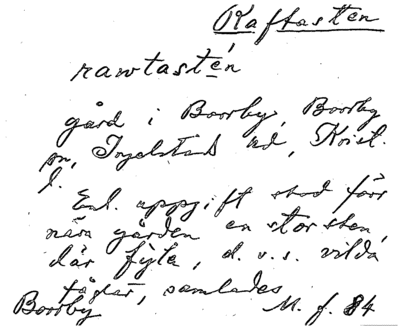 Raftasten
rawtastén
gård i Borrby, Borrby
sn, Ingelstads hd, Krist.
l.
Enl. uppgift stod förr
nära gården en stor sten,
där fyle, d.v.s. vilda
fåglar, samlades
Borrby M. f. 84